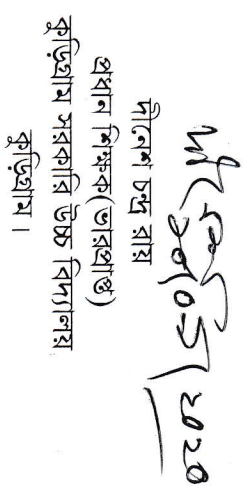 দীনেশ চন্দ্র রায়
প্রধান শিক্ষক(ভারপ্রাপ্ত)
কুড়িগ্রাম সরকারি উচ্চ বিদ্যালয়
কুড়িগ্রাম।